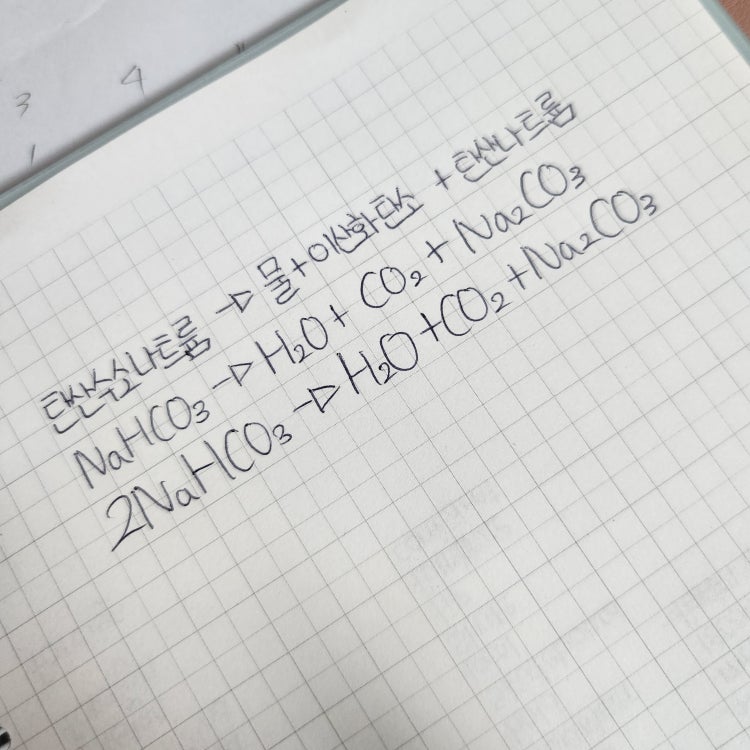 3 4
탄산수소나트륨 → 물+이산화탄소 + 탄산나트륨
NaHCO₃ → H₂O + CO₂ + Na₂CO₃
2NaHCO₃ → H₂O+CO₂+Na₂CO₃